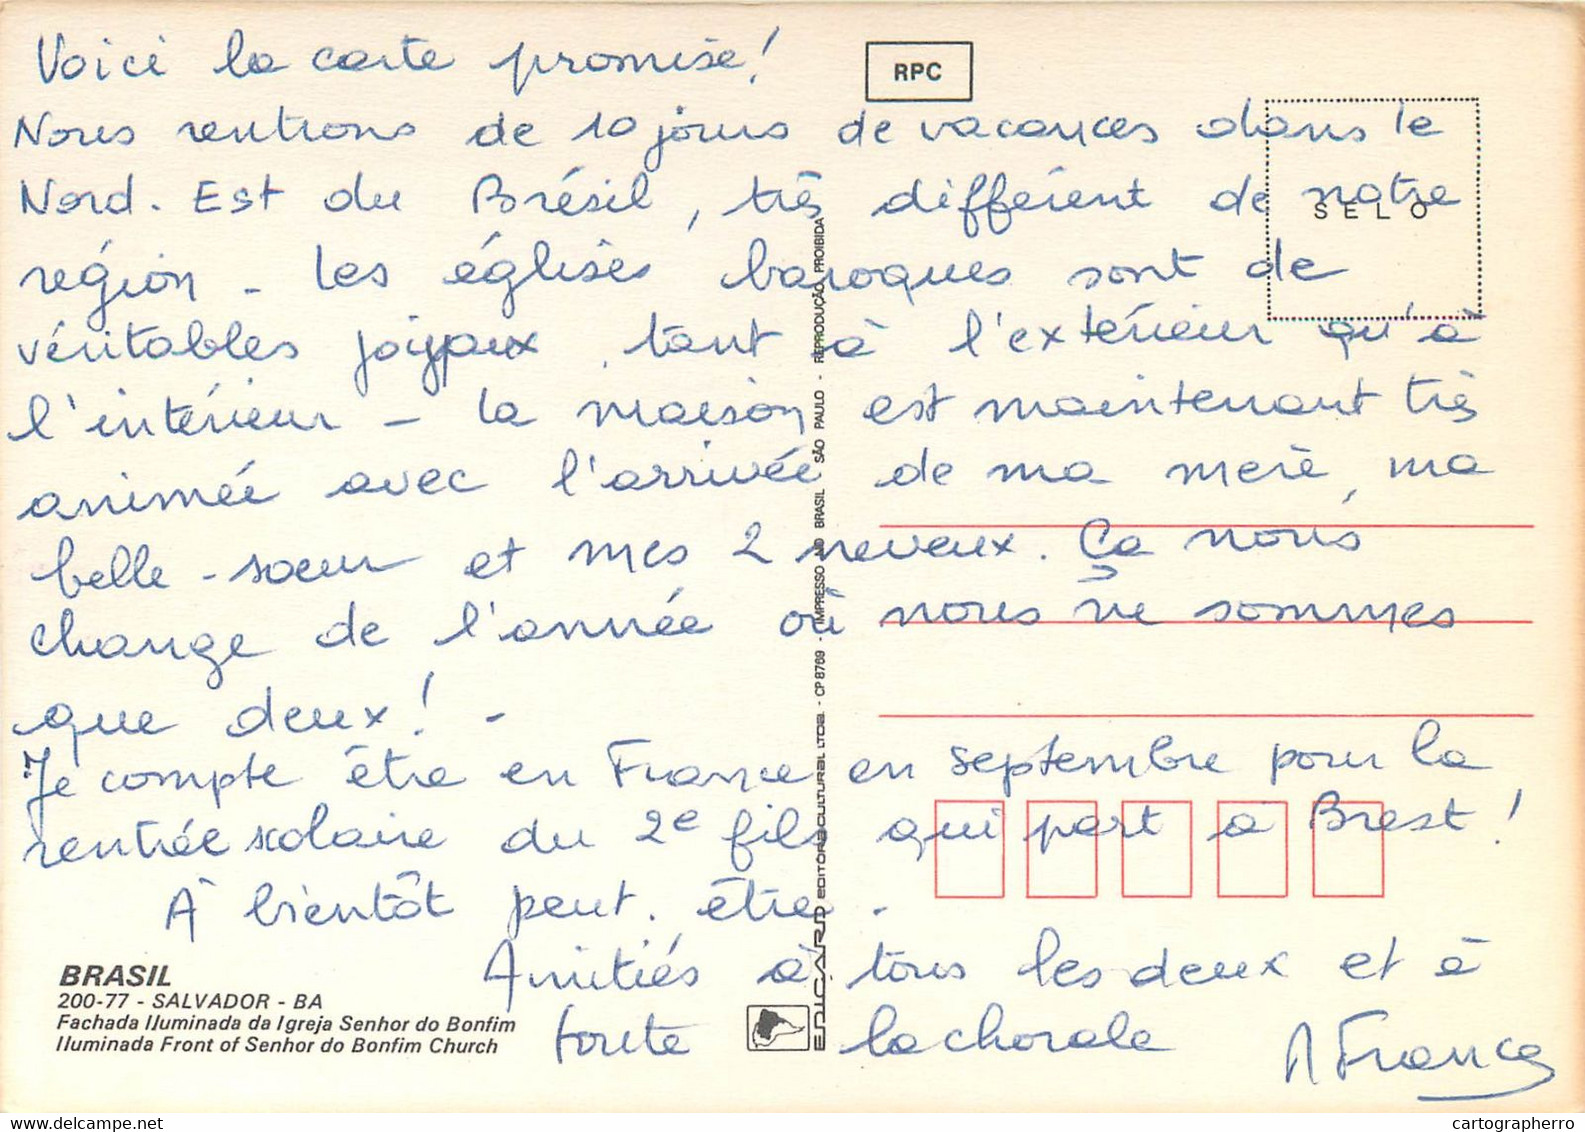 Voici la carte promise!
RPC
Nous rentrons de 10 jours de vacances dans le
Nord. Est du Brésil, très différent de notre
SELO
région - Les églises baroques sont de
véritables joyaux, tant à l'extérieur qu'à
l'intérieur - La maison est maintenant très
animée avec l'arrivée de ma mère, ma
belle-soeur et mes 2 neveux. Ça nous
change de l'année où nous ne sommes
que deux! -
Je compte être en France en septembre pour la
rentrée scolaire du 2e fils qui part à Brest!
À bientôt peut. être.
Amitiés à tous les deux et à
toute la chorale
France
BRASIL
200-77 - SALVADOR - BA
Fachada Iluminada da Igreja Senhor do Bonfim
Iluminada Front of Senhor do Bonfim Church
EDICARD EDITORA CULTURAL LTDA. - CP 8769 - IMPRESSO NO BRASIL SÃO PAULO - REPRODUÇÃO PROIBIDA
cartographerro